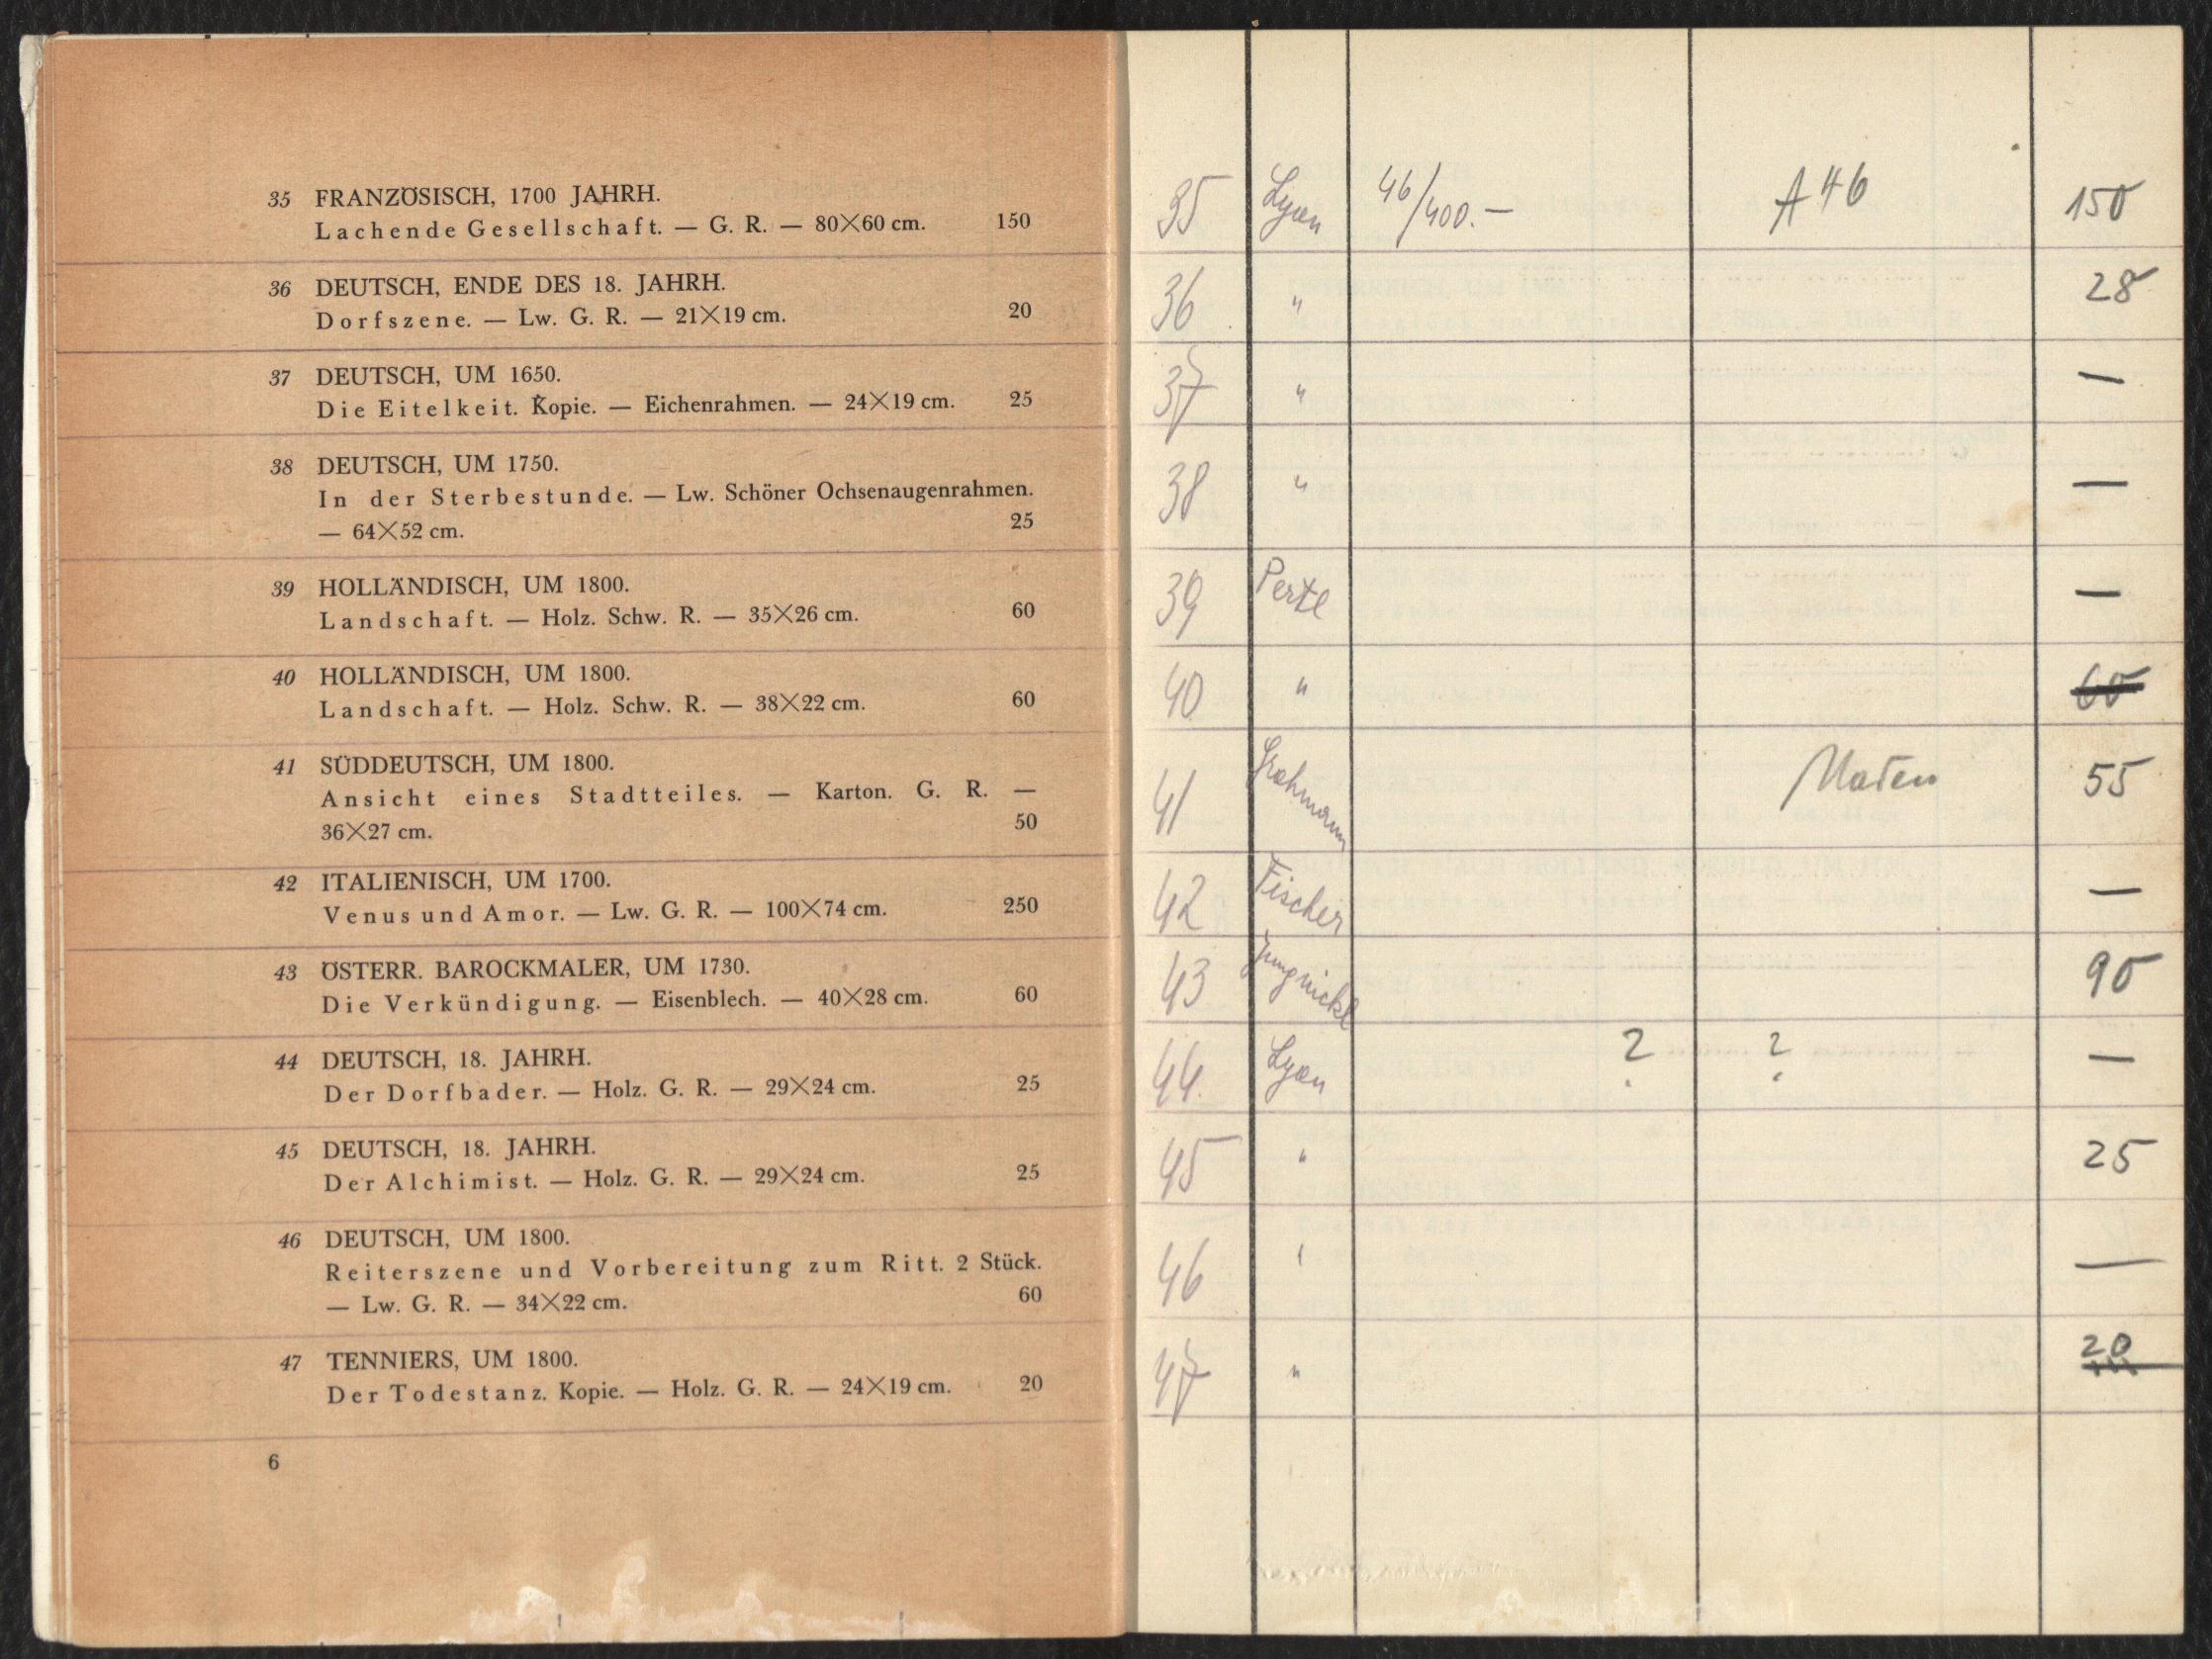 35 FRANZÖSISCH, 1700 JAHRH.
Lachende Gesellschaft. — G. R. — 80×60 cm. 150
36 DEUTSCH, ENDE DES 18. JAHRH.
Dorfszene. — Lw. G. R. — 21×19 cm. 20
37 DEUTSCH, UM 1650.
Die Eitelkeit. Kopie. — Eichenrahmen. — 24×19 cm. 25
38 DEUTSCH, UM 1750.
In der Sterbestunde. — Lw. Schöner Ochsenaugenrahmen.
— 64×52 cm. 25
39 HOLLÄNDISCH, UM 1800.
Landschaft. — Holz. Schw. R. — 35×26 cm. 60
40 HOLLÄNDISCH, UM 1800.
Landschaft. — Holz. Schw. R. — 38×22 cm. 60
41 SÜDDEUTSCH, UM 1800.
Ansicht eines Stadtteiles. — Karton. G. R. —
36×27 cm. 50
42 ITALIENISCH, UM 1700.
Venus und Amor. — Lw. G. R. — 100×74 cm. 250
43 ÖSTERR. BAROCKMALER, UM 1730.
Die Verkündigung. — Eisenblech. — 40×28 cm. 60
44 DEUTSCH, 18. JAHRH.
Der Dorfbader. — Holz. G. R. — 29×24 cm. 25
45 DEUTSCH, 18. JAHRH.
Der Alchimist. — Holz. G. R. — 29×24 cm. 25
46 DEUTSCH, UM 1800.
Reiterszene und Vorbereitung zum Ritt. 2 Stück.
— Lw. G. R. — 34×22 cm. 60
47 TENNIERS, UM 1800.
Der Todestanz. Kopie. — Holz. G. R. — 24×19 cm. 20
6
35 Lyon 46/400.— A 46 150
36 " 28
37 " —
38 " —
39 Pertl —
40 " 60
41 55
42 Fischer —
43 Jungnickl 90
44. Lyon ? ? —
45 " 25
46 " —
47 " 20